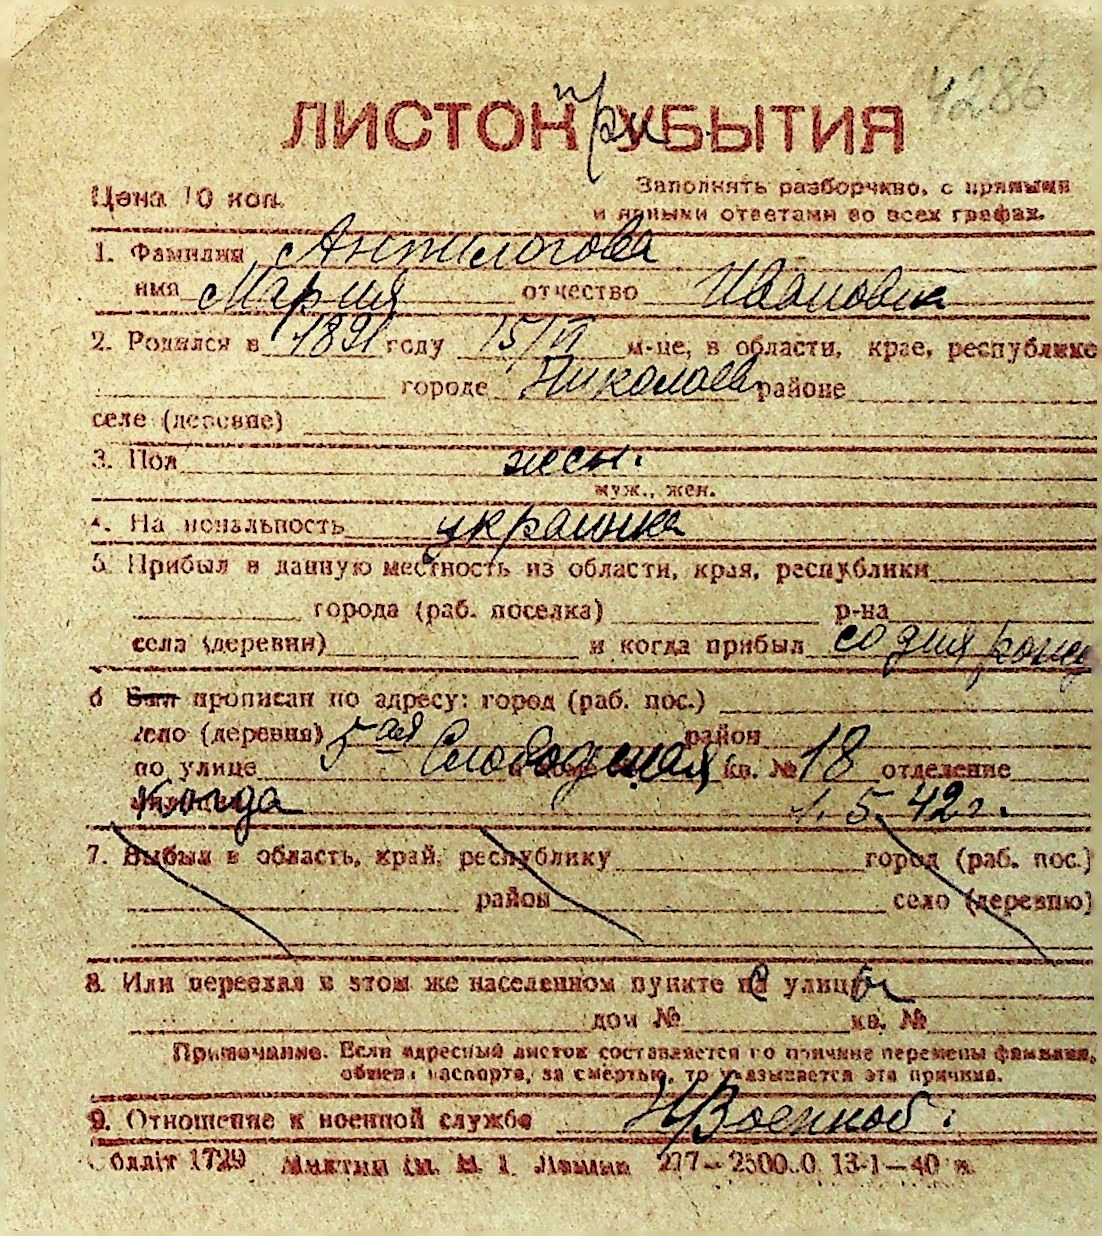 4286
ЛИСТОК при УБЫТИЯ
Цена 10 коп.
Заполнять разборчиво, с прямыми
и ясными ответами во всех графах.
1. Фамилия Антилогова
имя Мария отчество Ивановна
2. Родился в 1891 году 15/VI м-це, в области, крае, республике
городе Николаев районе
селе (деревне)
3. Пол жен.
муж., жен.
4. Национальность украинка
5. Прибыл в данную местность из области, края, республики
города (раб. поселка) р-на
села (деревни) и когда прибыл со дня рожд
6 Был прописан по адресу: город (раб. пос.)
село (деревня) район
по улице 5ая Слободская кв. № 18 отделение
Когда 1.5.42 г.
7. Выбыл в область, край, республику город (раб. пос.)
район село (деревню)
8. Или переехал в этом же населенном пункте с улицы
дом № кв. №
Примечание. Если адресный листок составляется по причине перемены фамилии,
обмена паспорта, за смертью, то указывается эта причина.
9. Отношение к военной службе н/военнооб.
Обліт 1729 277—2500.0. 13-1—40